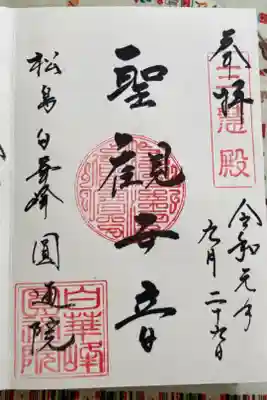 奉拝
三慧殿
令和元年
九月二十日
聖觀世音
松島白華峰圓通院
白華峰
圓通院